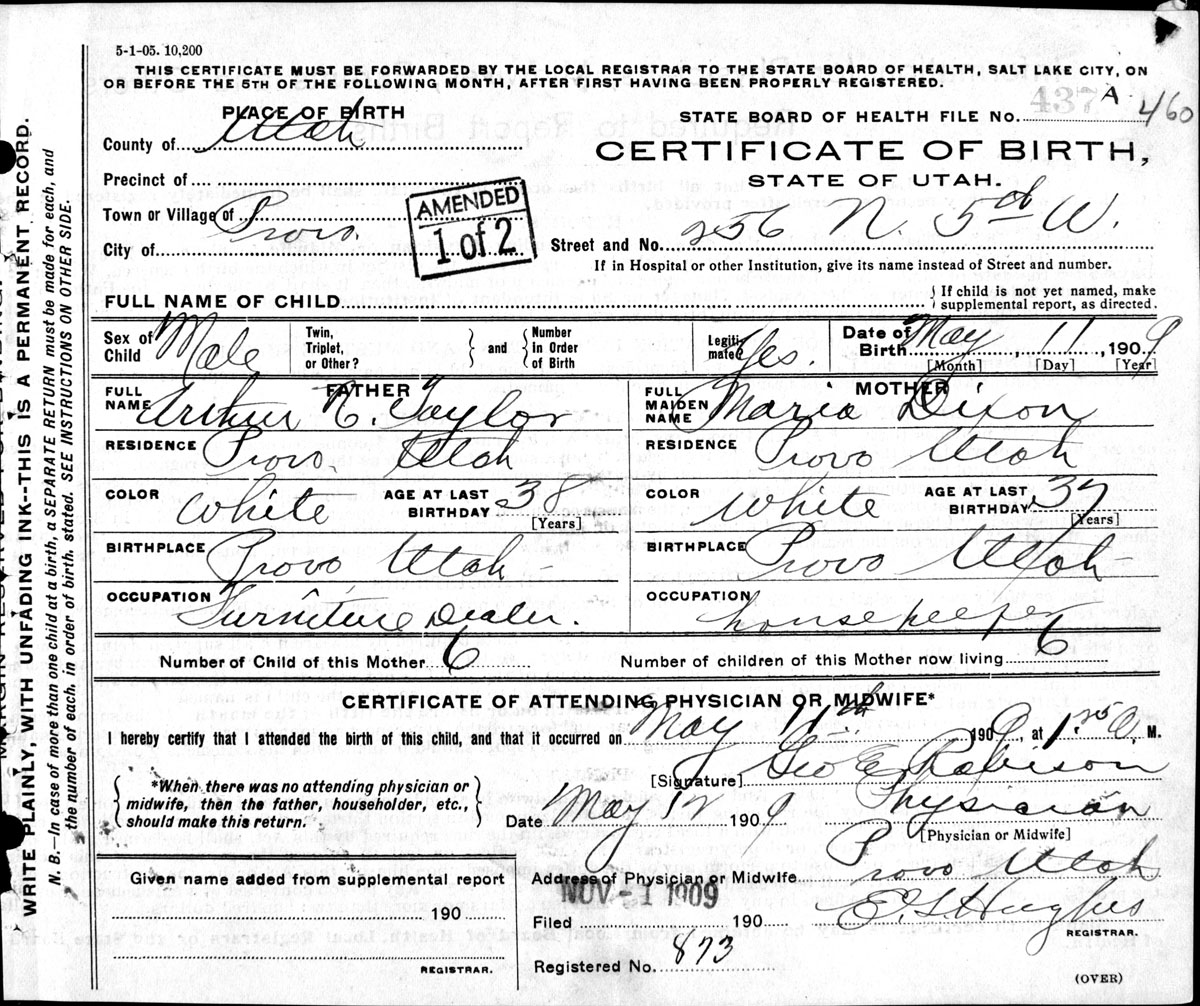 5-1-05. 10,200
THIS CERTIFICATE MUST BE FORWARDED BY THE LOCAL REGISTRAR TO THE STATE BOARD OF HEALTH, SALT LAKE CITY, ON
OR BEFORE THE 5TH OF THE FOLLOWING MONTH, AFTER FIRST HAVING BEEN PROPERLY REGISTERED.
437
PLACE OF BIRTH
STATE BOARD OF HEALTH FILE NO. A 460
County of Utah
CERTIFICATE OF BIRTH,
Precinct of
STATE OF UTAH.
Town or Village of Provo.
AMENDED
1 of 2
City of
Street and No. 256 N. 5th W.
If in Hospital or other Institution, give its name instead of Street and number.
FULL NAME OF CHILD
{If child is not yet named, make
supplemental report, as directed.
Sex of Child Male
Twin, Triplet, or Other? } and { Number In Order of Birth
Legitimate? Yes.
Date of Birth May, 11, 1909
[Month] [Day] [Year]
FATHER
MOTHER
FULL NAME Arthur N. Taylor
FULL MAIDEN NAME Maria Dixon
RESIDENCE Provo. Utah
RESIDENCE Provo Utah
COLOR White AGE AT LAST BIRTHDAY 38 [Years]
COLOR White AGE AT LAST BIRTHDAY 37 [Years]
BIRTHPLACE Provo Utah -
BIRTHPLACE Provo Utah -
OCCUPATION Furniture Dealer.
OCCUPATION housekeeper
Number of Child of this Mother 6
Number of children of this Mother now living 6
CERTIFICATE OF ATTENDING PHYSICIAN OR MIDWIFE*
I hereby certify that I attended the birth of this child, and that it occurred on May 11th 1909, at 1:25 a. M.
{*When there was no attending physician or
midwife, then the father, householder, etc.,
should make this return.}
[Signature] Geo E Robison
Date May 12 1909 Physician
[Physician or Midwife]
Given name added from supplemental report
Address of Physician or Midwife Provo Utah
190
NOV -1 1909
Filed 190 E. S. Hughes
REGISTRAR.
Registered No. 873
REGISTRAR.
(OVER)
WRITE PLAINLY, WITH UNFADING INK--THIS IS A PERMANENT RECORD.
N. B.—In case of more than one child at birth, a SEPARATE RETURN must be made for each, and
the number of each, in order of birth, stated. SEE INSTRUCTIONS ON OTHER SIDE.